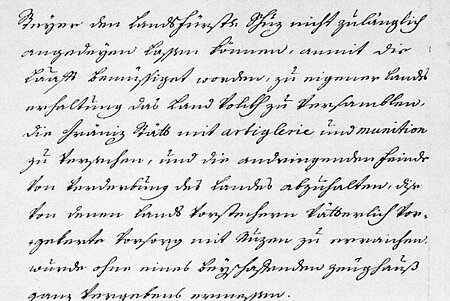 Steyer den Landsfürstl: Schuz nicht zulänglich
angedeyen lassen können, anmit die
bemüssiget worden, zu eigener Lands
erhaltung das Land Volkh zu Versamblen,
die Fränz Stätt mit artiglerie und munition
zu Versehen, und die andringenden Feinde
von Verderbung des Landes abzuhalten, dise
von denen Lands Vorstehern Vätterlich Vor-
gekerte Vorsorg mit Nuzen zu erraichen,
wurde ohne eines beyschaffenden Zeughauß
ganz Vergebens ermessen.